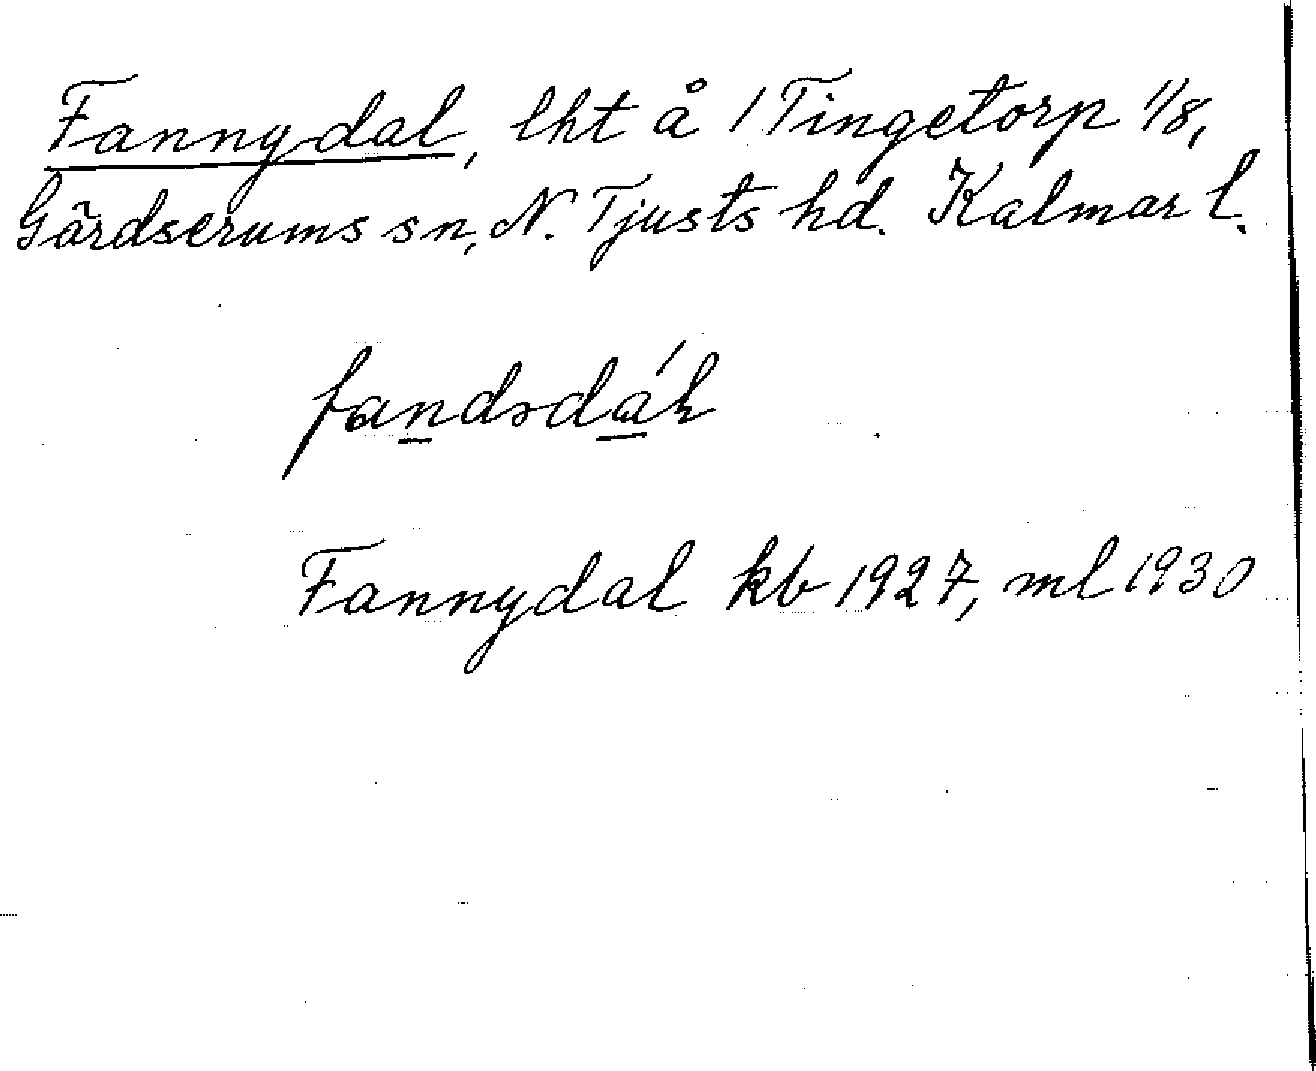 Fannydal, lht å 1 Tingetorp 1/8,
Gärdserums sn, N. Tjusts hd. Kalmar l.
Fannydal kb 1927, ml 1930